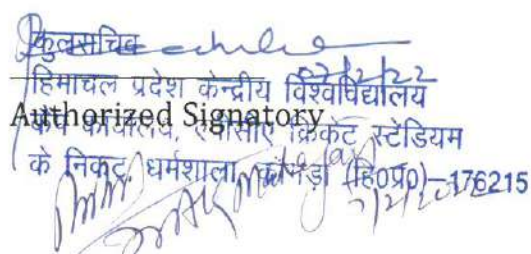 कुलसचिव
हिमाचल प्रदेश केन्द्रीय विश्वविद्यालय
Authorized Signatory
कैंप कार्यालय, एचपीसीए क्रिकेट स्टेडियम
के निकट, धर्मशाला, कांगड़ा (हि०प्र०)–176215